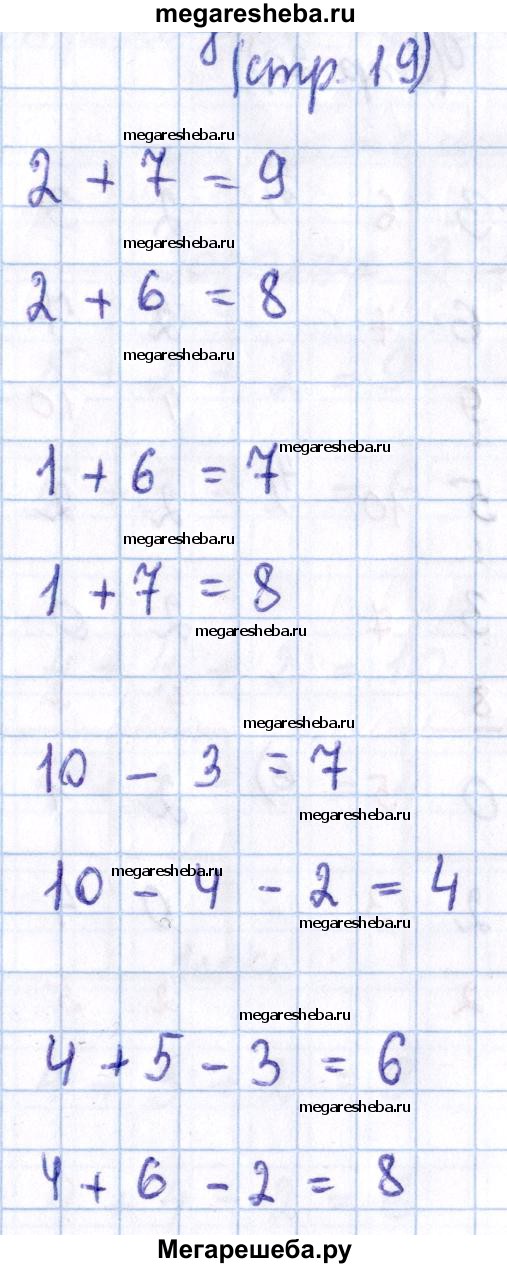 megaresheba.ru
(стр. 19)
megaresheba.ru
2 + 7 = 9
megaresheba.ru
2 + 6 = 8
megaresheba.ru
megaresheba.ru
1 + 6 = 7
megaresheba.ru
1 + 7 = 8
megaresheba.ru
megaresheba.ru
10 - 3 = 7
megaresheba.ru
megaresheba.ru
10 - 4 - 2 = 4
megaresheba.ru
megaresheba.ru
4 + 5 - 3 = 6
megaresheba.ru
4 + 6 - 2 = 8
Мегарешеба.ру